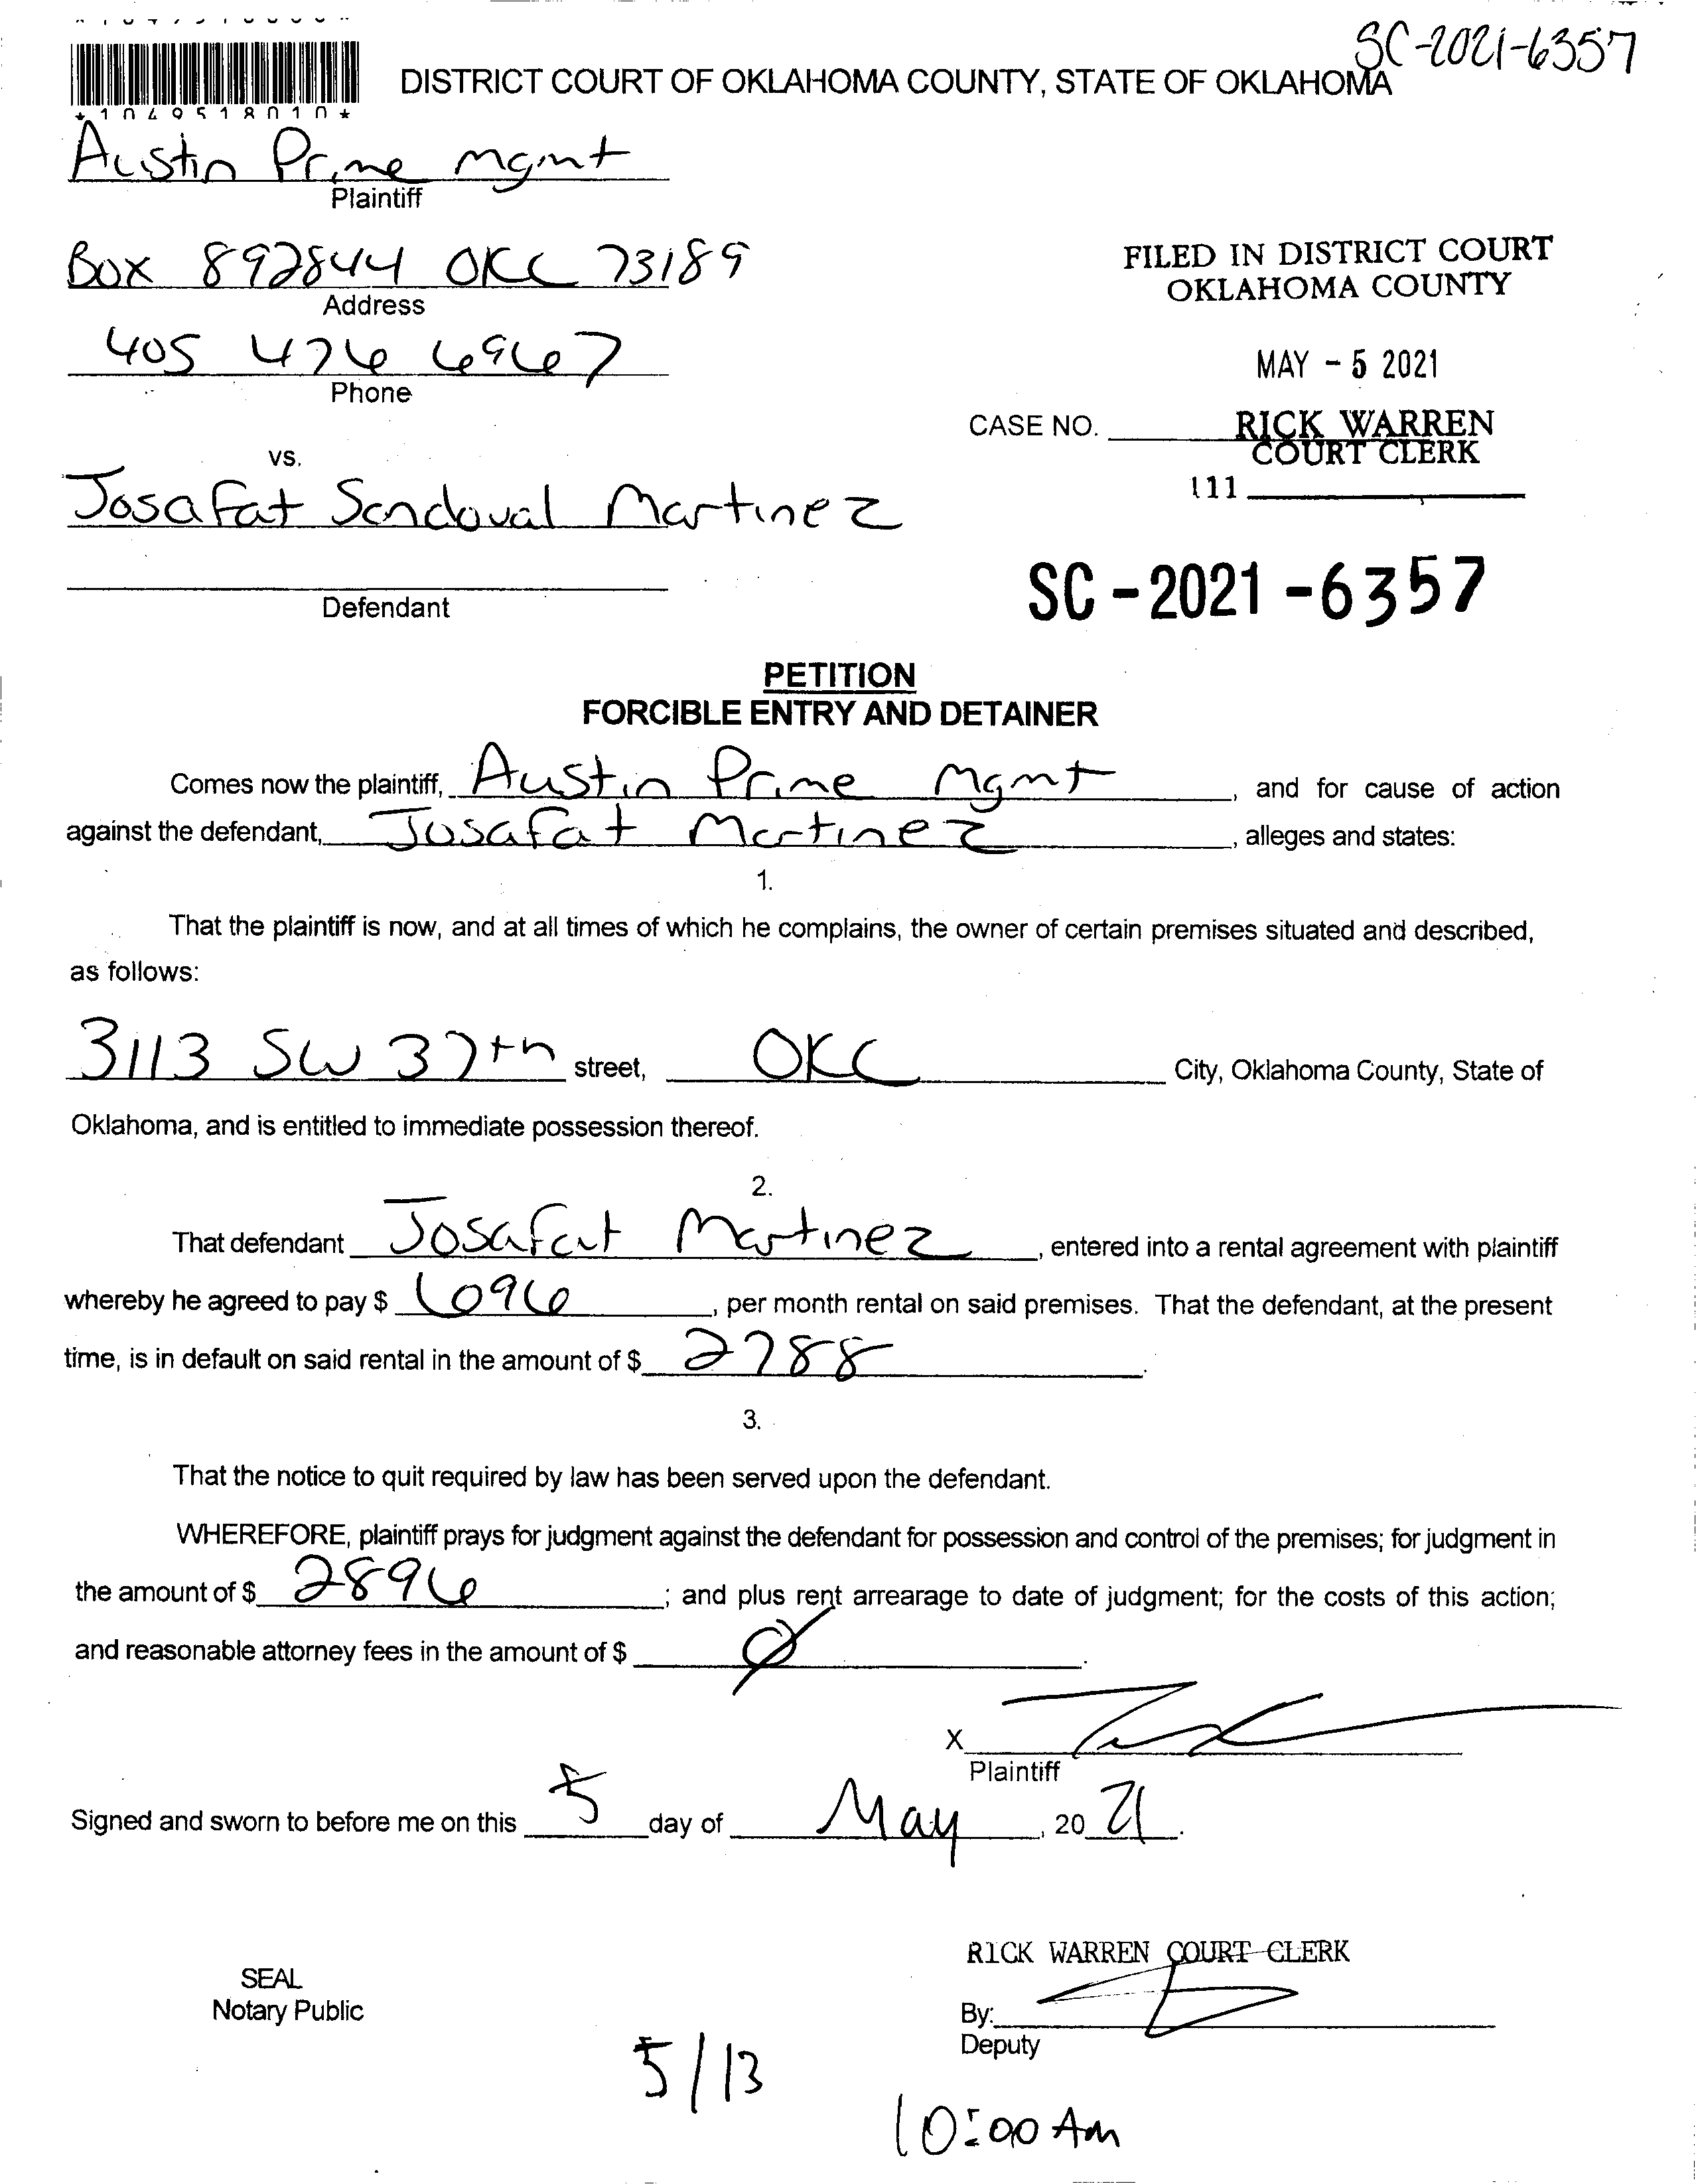 SC-2021-6357
DISTRICT COURT OF OKLAHOMA COUNTY, STATE OF OKLAHOMA
*1049518010*
Austin Prime Mgmt
Plaintiff
Box 892844 OKC 73189
Address
FILED IN DISTRICT COURT
OKLAHOMA COUNTY
405 476 6967
Phone
MAY - 5 2021
CASE NO.
RICK WARREN
COURT CLERK
vs.
111
Josafat Sandoval Martinez
Defendant
SC-2021-6357
PETITION
FORCIBLE ENTRY AND DETAINER
Comes now the plaintiff, Austin Prime Mgmt, and for cause of action
against the defendant, Josafat Martinez, alleges and states:
1.
That the plaintiff is now, and at all times of which he complains, the owner of certain premises situated and described,
as follows:
3113 SW 37th street, OKC City, Oklahoma County, State of
Oklahoma, and is entitled to immediate possession thereof.
2.
That defendant Josafat Martinez, entered into a rental agreement with plaintiff
whereby he agreed to pay $ 696, per month rental on said premises. That the defendant, at the present
time, is in default on said rental in the amount of $ 2788.
3.
That the notice to quit required by law has been served upon the defendant.
WHEREFORE, plaintiff prays for judgment against the defendant for possession and control of the premises; for judgment in
the amount of $ 2896; and plus rent arrearage to date of judgment; for the costs of this action;
and reasonable attorney fees in the amount of $ Ø.
X
Plaintiff
Signed and sworn to before me on this 5 day of May, 20 21.
RICK WARREN COURT CLERK
SEAL
Notary Public
By:
Deputy
5/13
10:00 Am